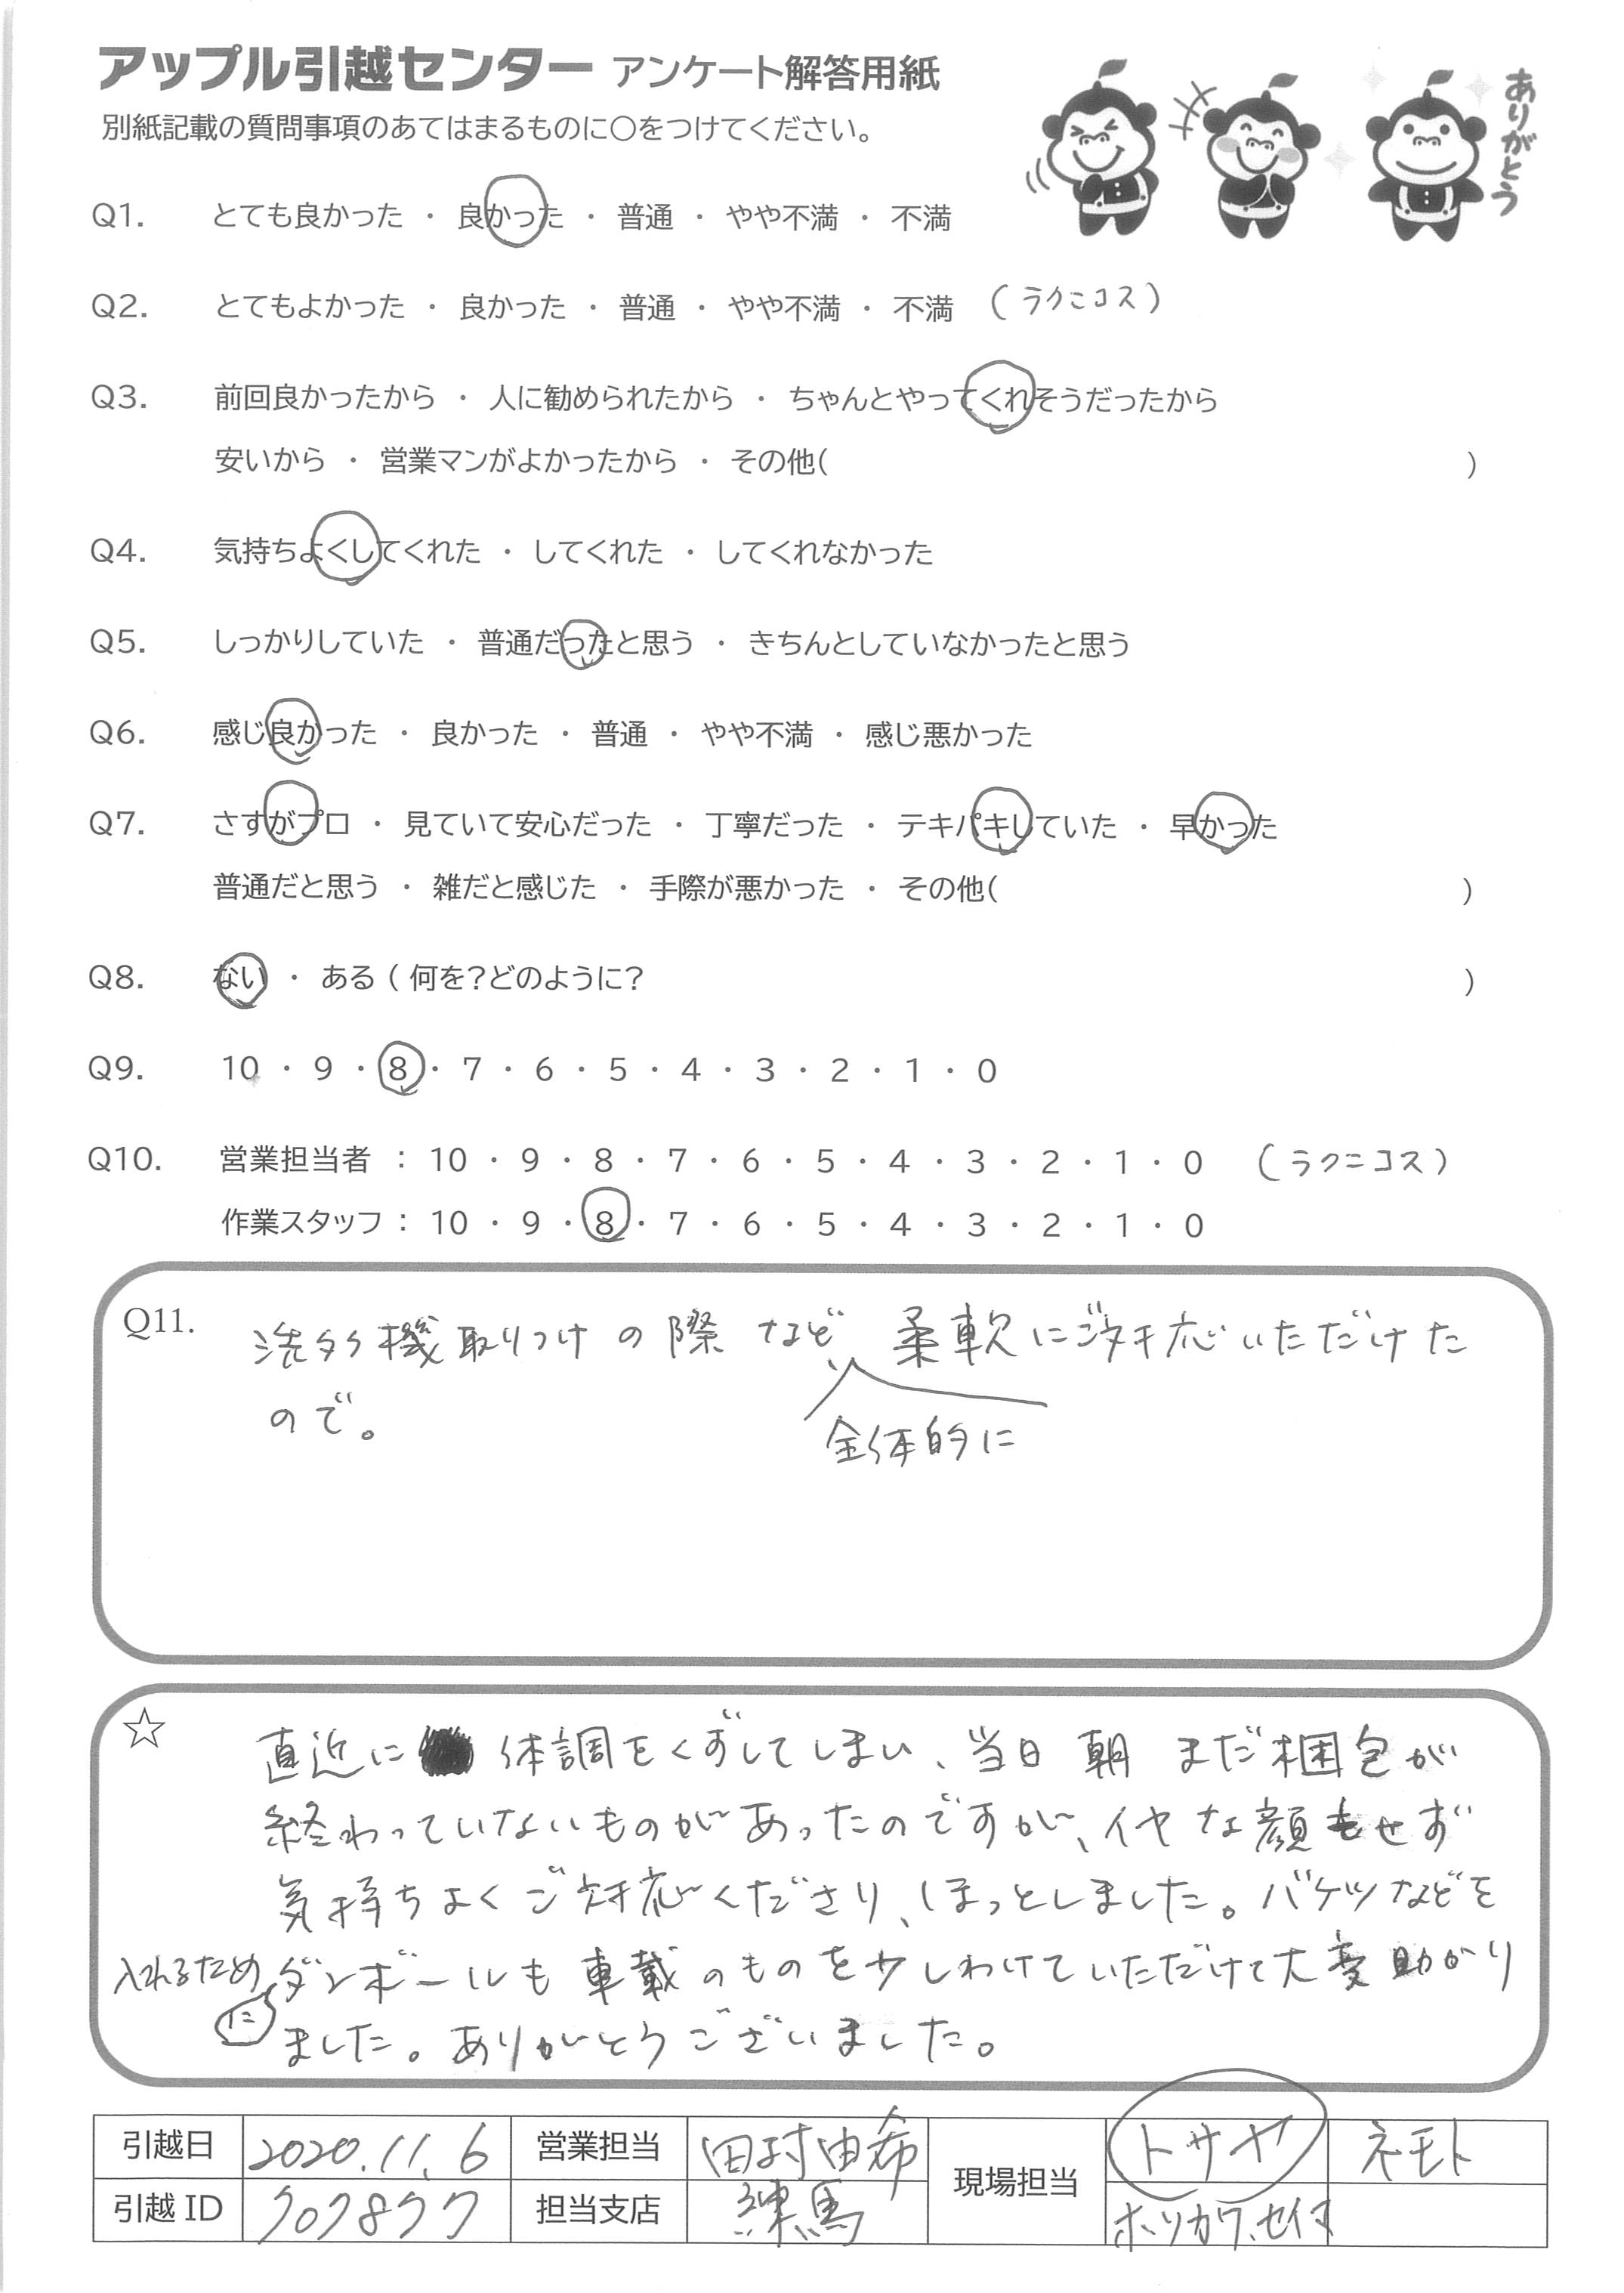 アップル引越センター アンケート解答用紙
別紙記載の質問事項のあてはまるものに○をつけてください。
ありがとう
Q1. とても良かった ・ 良かった ・ 普通 ・ やや不満 ・ 不満
Q2. とてもよかった ・ 良かった ・ 普通 ・ やや不満 ・ 不満 (ラクニコス)
Q3. 前回良かったから ・ 人に勧められたから ・ ちゃんとやってくれそうだったから
安いから ・ 営業マンがよかったから ・ その他( )
Q4. 気持ちよくしてくれた ・ してくれた ・ してくれなかった
Q5. しっかりしていた ・ 普通だったと思う ・ きちんとしていなかったと思う
Q6. 感じ良かった ・ 良かった ・ 普通 ・ やや不満 ・ 感じ悪かった
Q7. さすがプロ ・ 見ていて安心だった ・ 丁寧だった ・ テキパキしていた ・ 早かった
普通だと思う ・ 雑だと感じた ・ 手際が悪かった ・ その他( )
Q8. ない ・ ある ( 何を?どのように? )
Q9. 10 ・ 9 ・ 8 ・ 7 ・ 6 ・ 5 ・ 4 ・ 3 ・ 2 ・ 1 ・ 0
Q10. 営業担当者 : 10 ・ 9 ・ 8 ・ 7 ・ 6 ・ 5 ・ 4 ・ 3 ・ 2 ・ 1 ・ 0 (ラクニコス)
作業スタッフ : 10 ・ 9 ・ 8 ・ 7 ・ 6 ・ 5 ・ 4 ・ 3 ・ 2 ・ 1 ・ 0
Q11. 洗タク機取りつけの際など 柔軟にご対応いただけた
ので。
全体的に
☆ 直近に 体調をくずしてしまい、当日朝 まだ梱包が
終わっていないものがあったのですが、イヤな顔もせず
気持ちよくご対応くださり、ほっとしました。バケツなどを
入れるために ダンボールも車載のものを少しわけていただけて大変助かり
ました。ありがとうございました。
引越日 2020.11.6 営業担当 田村由希 現場担当 トサヤ ネモト
引越ID 707877 担当支店 練馬 ホソカワ、セイマ